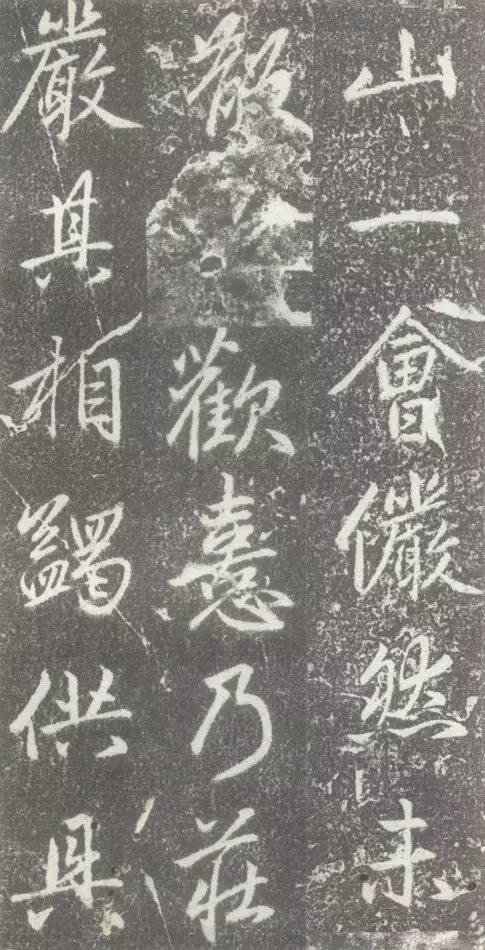 山一會儼然未
散歡憙乃莊
嚴其相蠲供具